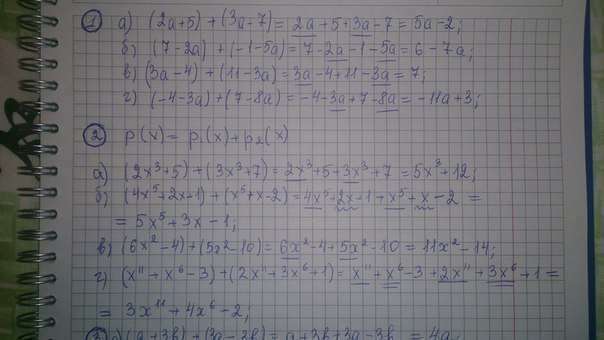 1 а) (2a+5) + (3a-7) = 2a+5+3a-7 = 5a-2;
б) (7-2a) + (-1-5a) = 7-2a-1-5a = 6-7a;
в) (3a-4) + (11-3a) = 3a-4+11-3a = 7;
г) (-4-3a) + (7-8a) = -4-3a+7-8a = -11a+3;
2 p(x) = p₁(x) + p₂(x)
а) (2x³+5) + (3x³+7) = 2x³+5+3x³+7 = 5x³+12;
б) (4x⁵+2x+1) + (x⁵+x-2) = 4x⁵+2x+1+x⁵+x-2 =
= 5x⁵+3x-1;
в) (6x²-4) + (5x²-10) = 6x²-4+5x²-10 = 11x²-14;
г) (x¹¹+x⁶-3) + (2x¹¹+3x⁶+1) = x¹¹+x⁶-3+2x¹¹+3x⁶+1 =
= 3x¹¹+4x⁶-2;
3 а) (a+3b) + (3a-3b) = a+3b+3a-3b = 4a;